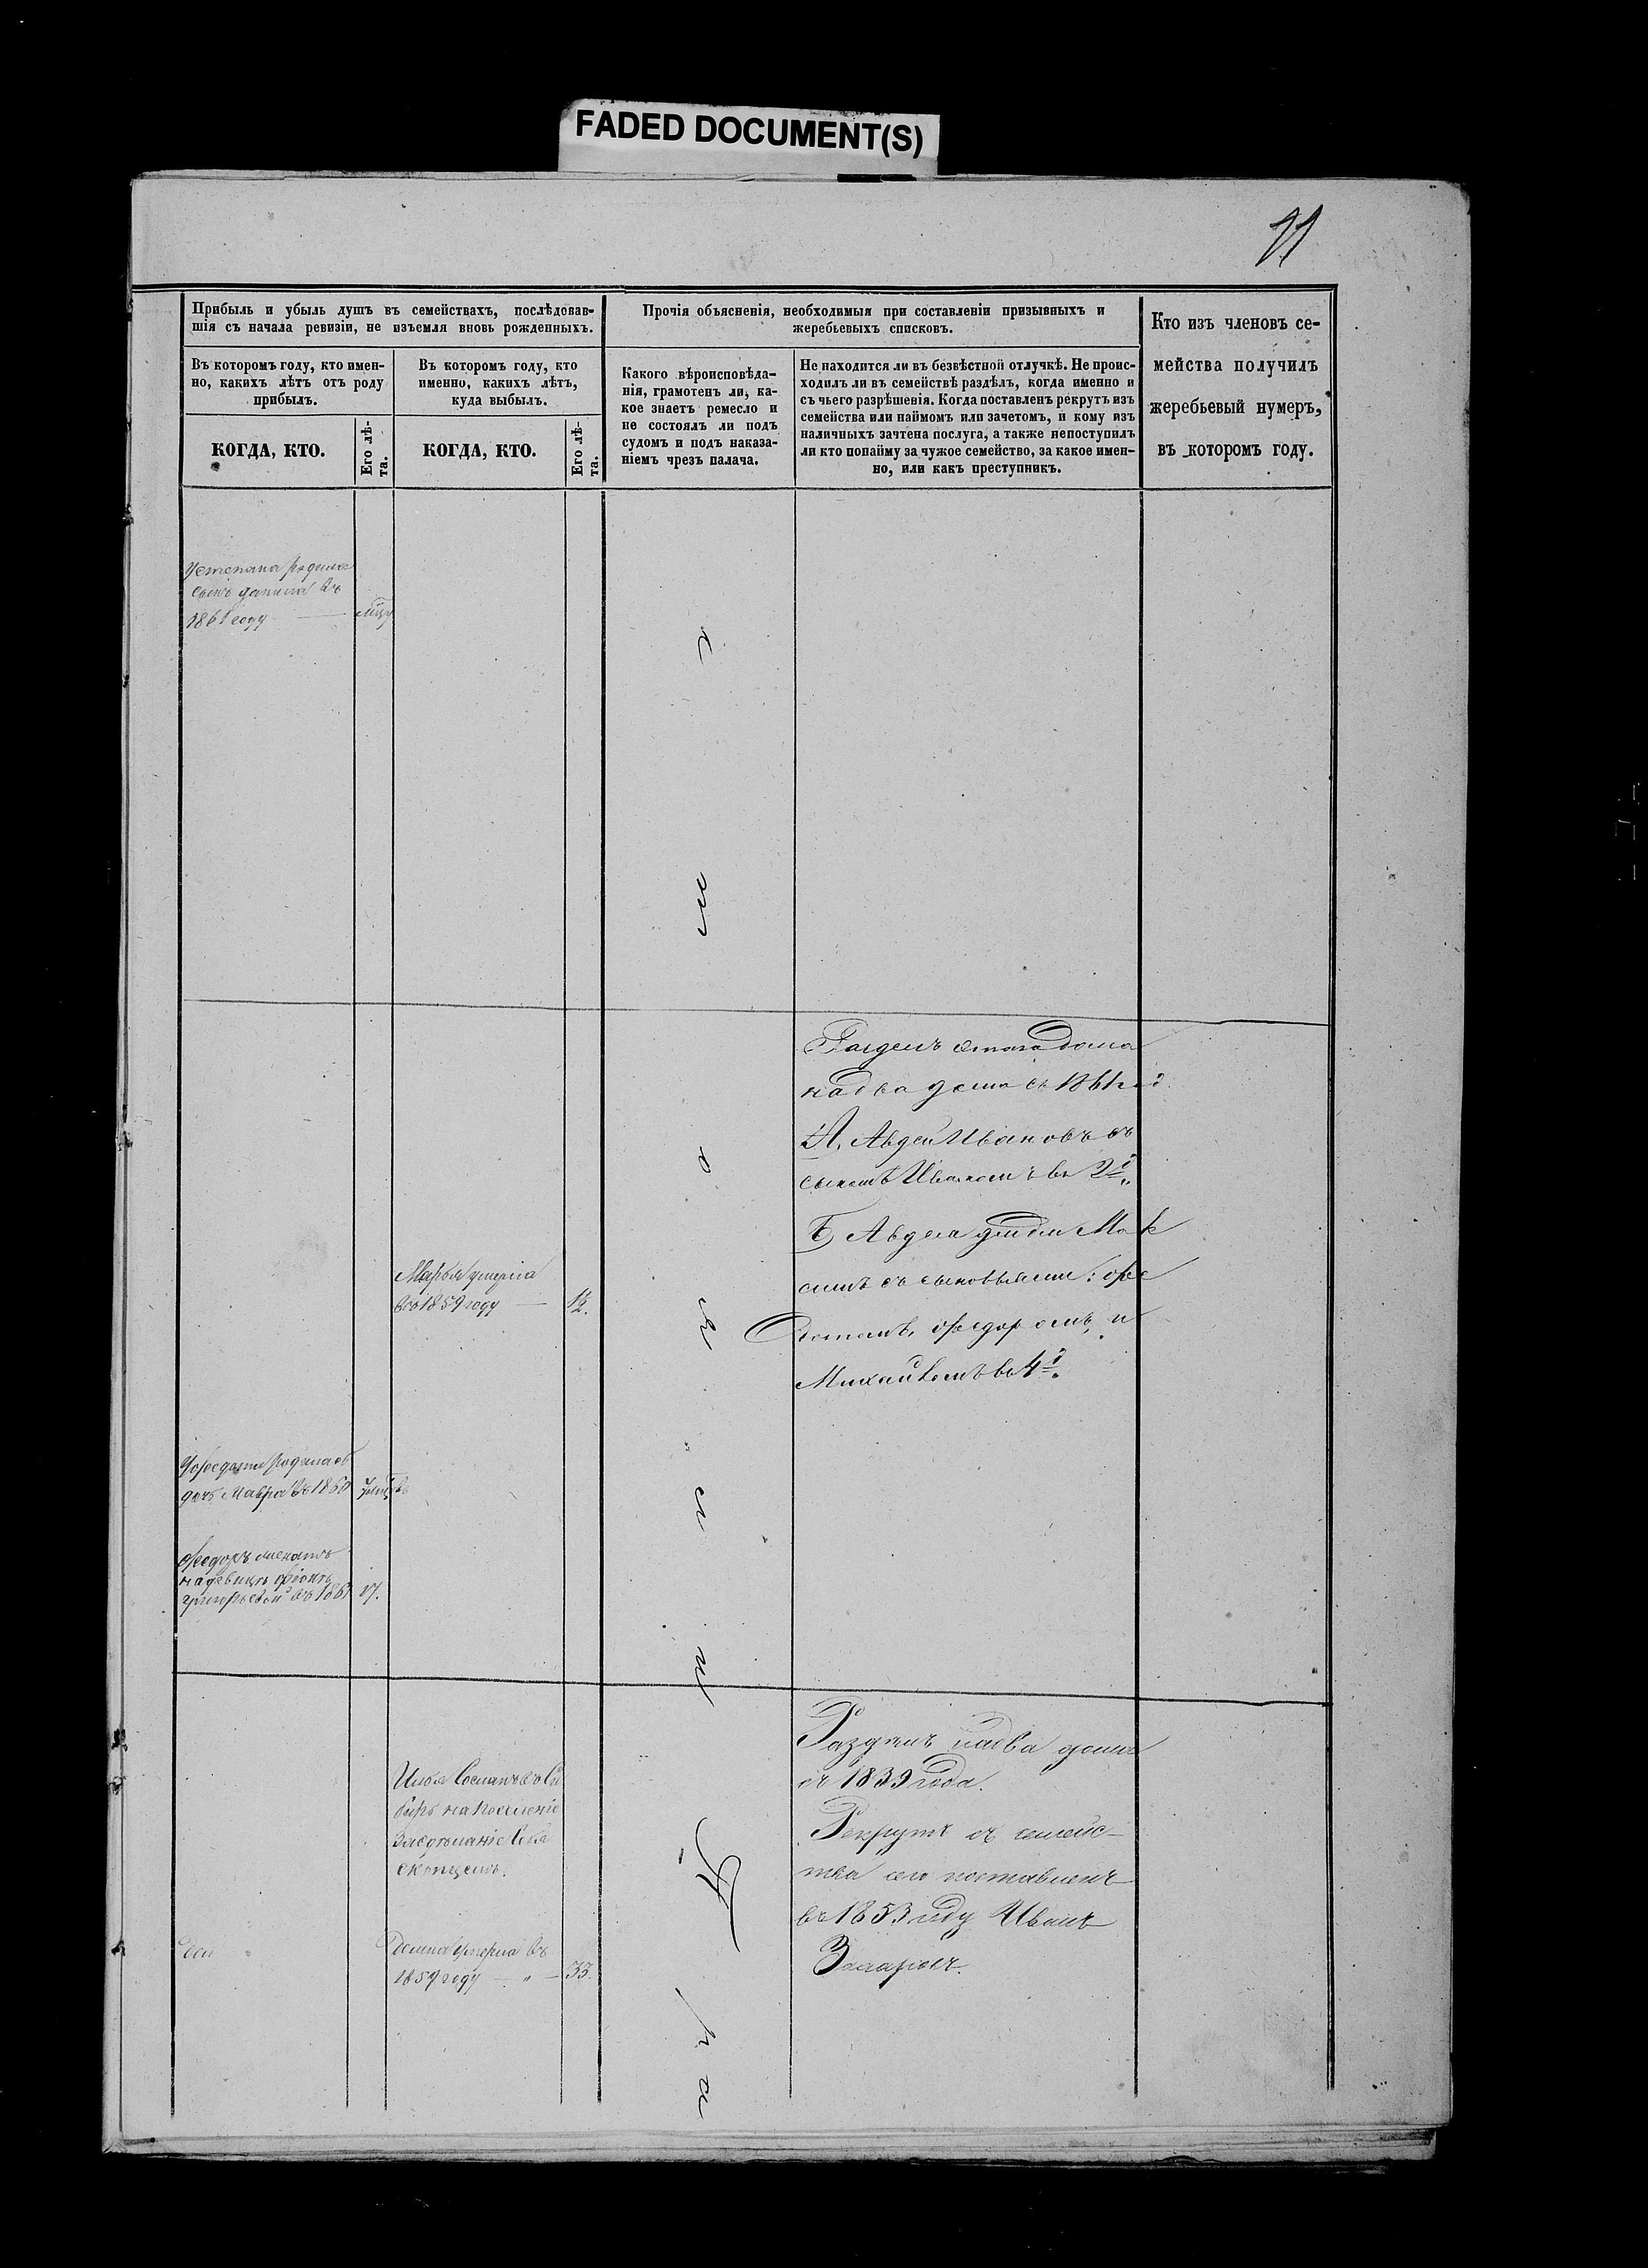 FADED DOCUMENT(S)
11
Прибыль и убыль душъ въ семействахъ, послѣдовав-
шія съ начала ревизіи, не изъемля вновь рожденныхъ.
Прочія объясненія, необходимыя при составленіи призывныхъ и
жеребьевыхъ списковъ.
Кто изъ членовъ се-
мейства получилъ
жеребьевый нумеръ,
въ которомъ году.
Въ которомъ году, кто имен-
но, какихъ лѣтъ отъ роду
прибылъ.
Въ которомъ году, кто
именно, какихъ лѣтъ,
куда выбылъ.
Какого вѣроисповѣда-
нія, грамотенъ ли, ка-
кое знаетъ ремесло и
не состоялъ ли подъ
судомъ и подъ наказа-
ніемъ чрезъ палача.
Не находится ли въ безвѣстной отлучкѣ. Не проис-
ходилъ ли въ семействѣ раздѣлъ, когда именно и
съ чьего разрѣшенія. Когда поставленъ рекрутъ изъ
семейства или наймомъ или зачетомъ, и кому изъ
наличныхъ зачтена послуга, а также непоступилъ
ли кто понайму за чужое семейство, за какое имен-
но, или какъ преступникъ.
КОГДА, КТО.
Его лѣ-
та.
КОГДА, КТО.
Его лѣ-
та.
Устепана родился
сынъ данила въ
1861 году
Разделъ этого дома
на два дома съ 1861 год
А, Авдей Ивановъ съ
сыномъ Иваномъ въ 2й
Б, Авдея дядя Мак
симъ съ сыновьями:
Федоромъ и
Михайломъ въ 4й
Марья умерла
въ 1859 году
12.
родилась
дочь Мавра въ 1860
Федоръ женатъ
на девице
Григорьевой въ 1861 17.
Раздѣлъ на два дома
съ 1839 года.
Рекрутъ съ семейс-
тва сего поставленъ
въ 1853 году Иванъ
Захаровъ.
Илья Сосланъ въ Си
бирь на поселеніе
за сделаніе Себя
скопцемъ.
Домна умерла въ
1859 году — " — 33.